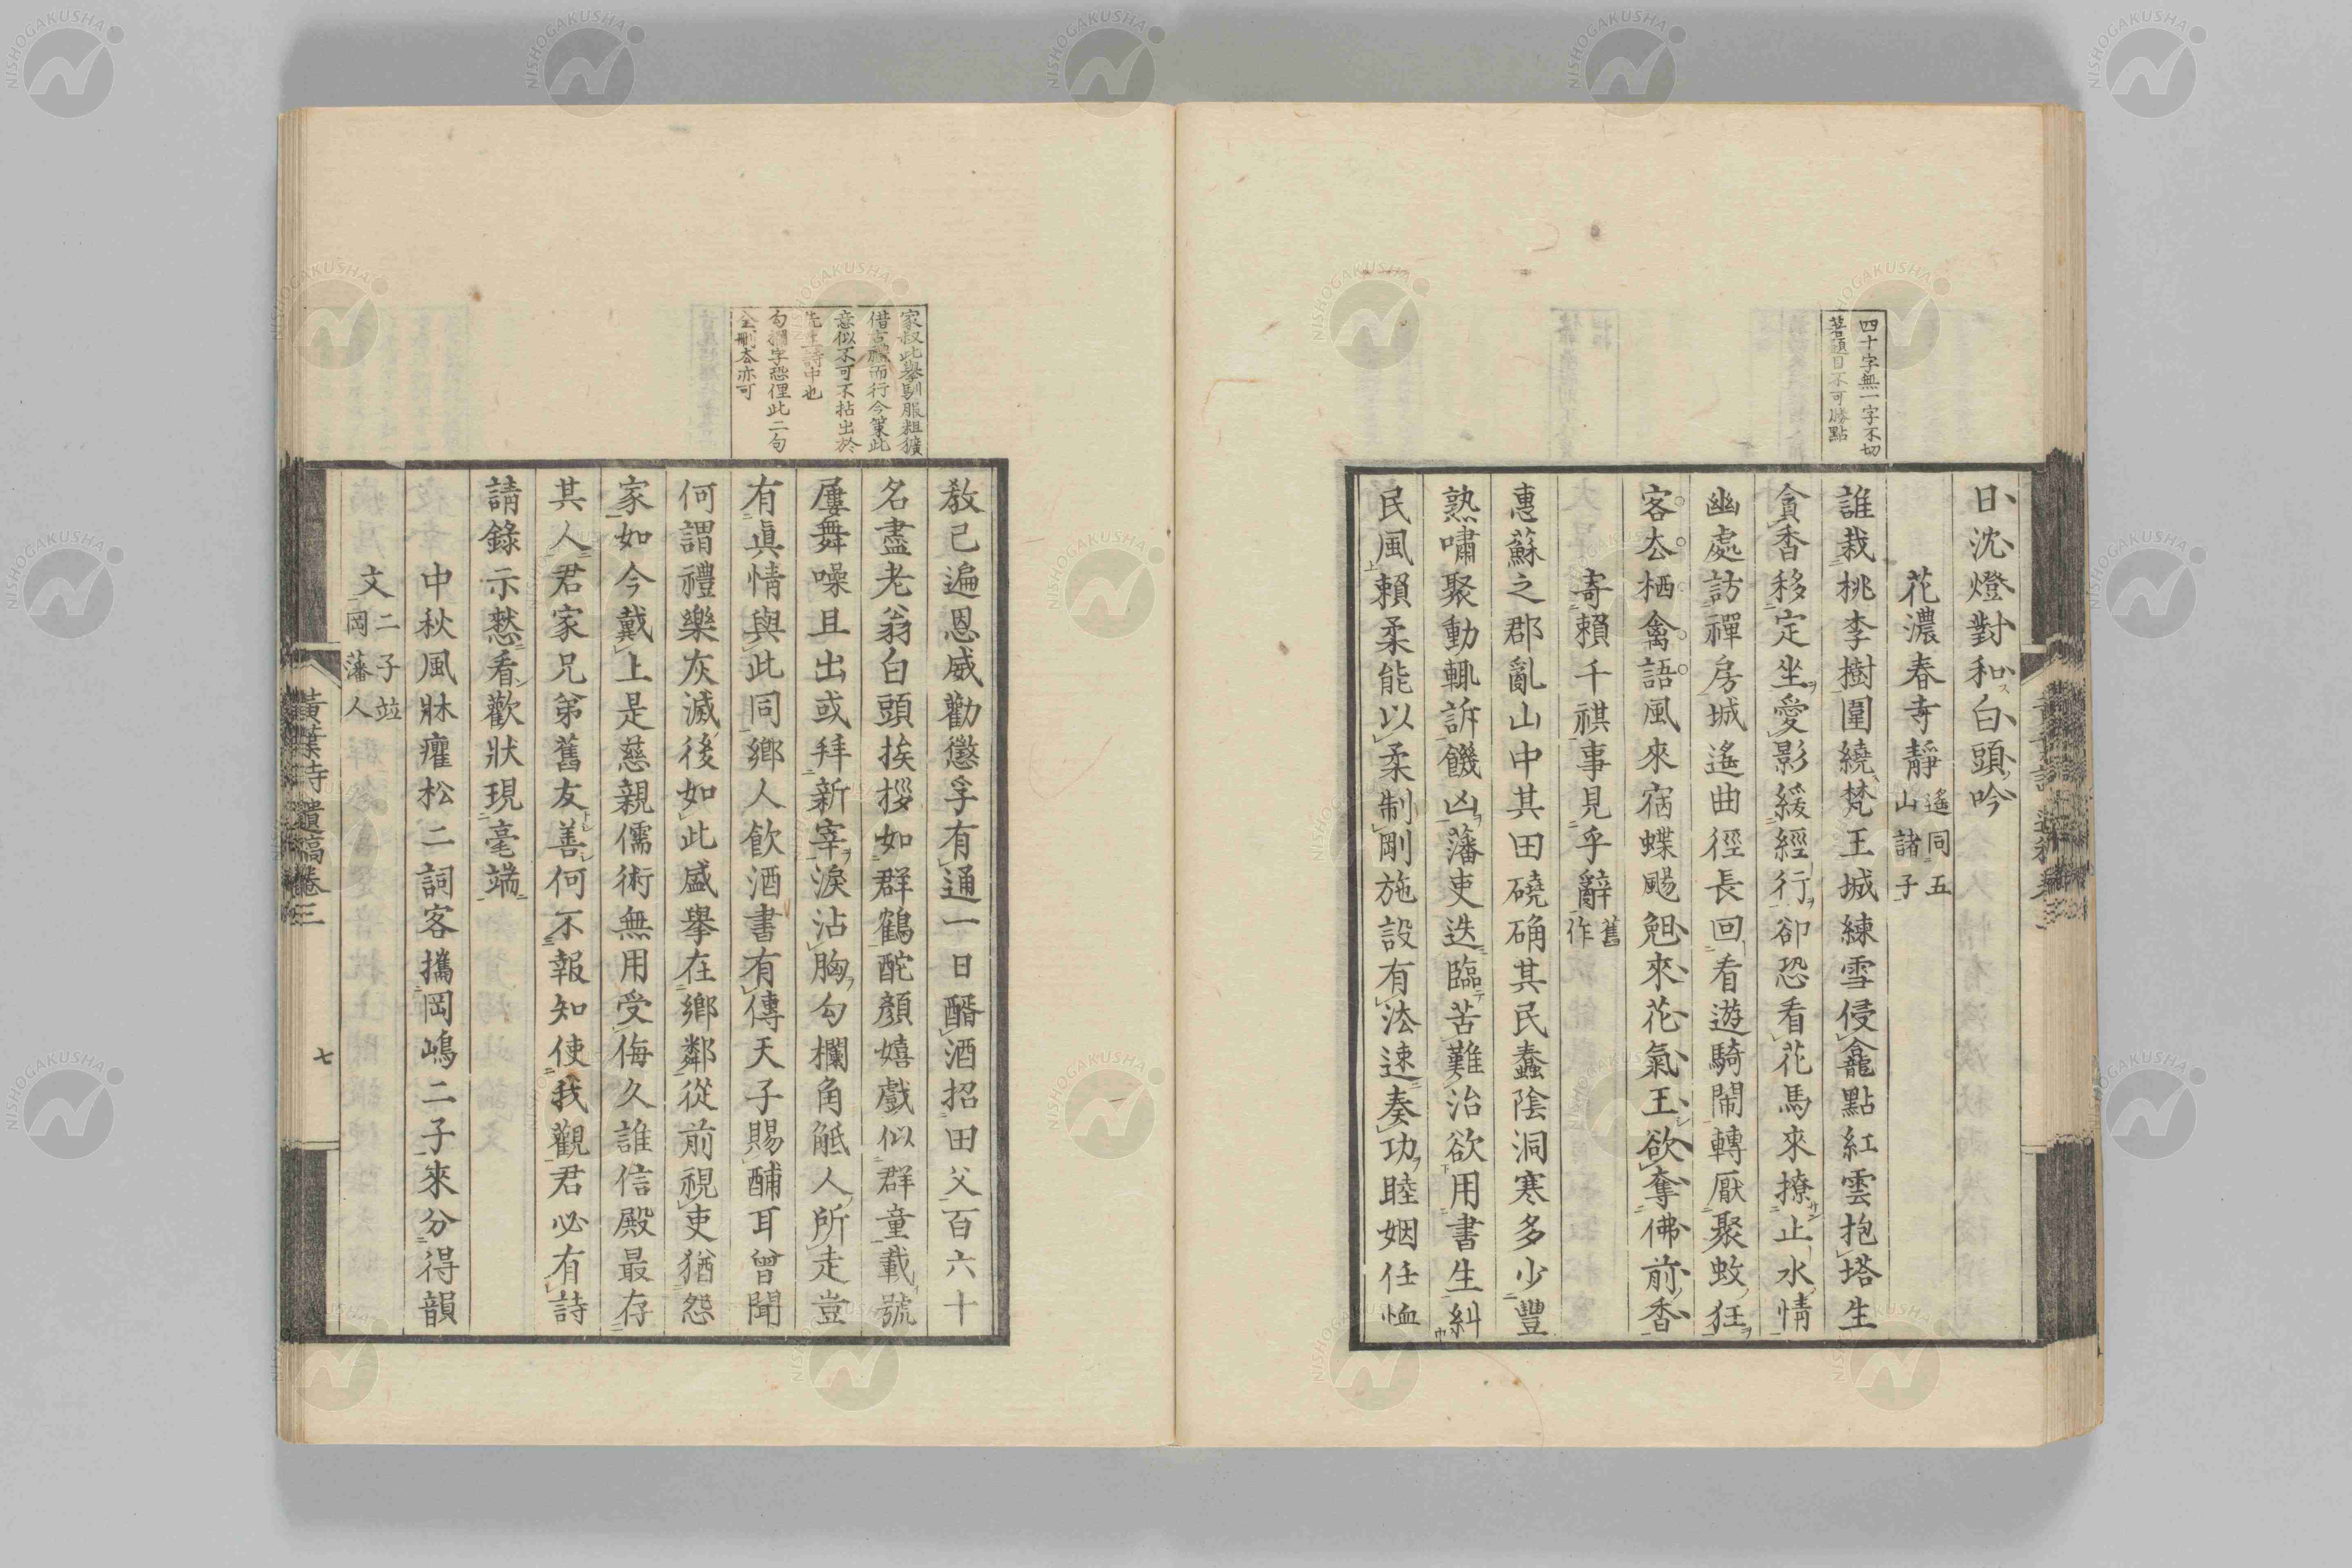 四十字無一字不切
著題目不可勝點
日沈燈對和白頭吟
花濃春寺靜 遙同五
山諸子
誰栽桃李樹圍繞梵王城練雪侵龕點紅雲抱塔生
貪香移定坐愛影緩經行卻恐看花馬來撩止水情
幽處訪禪房城遙曲徑長回看遊騎鬧轉厭聚蚊狂
客去栖禽語風來宿蝶颺兜來花氣王欲奪佛前香
寄賴千祺事見乎辭 舊
作
惠蘇之郡亂山中其田磽确其民蠢陰洞寒多少豐
熟嘯聚動輒訴饑凶藩吏迭臨苦難治欲用書生糾
民風賴柔能以柔制剛施設有法速奏功睦姻任恤
家叔此舉馴服粗獷
借古禮而行今策此
意似不可不拈出於
先生詩中也
勾欄字恐俚此二句
全刪去亦可
教已遍恩威勸懲孚有通一日醑酒招田父百六十
名盡老翁白頭挨拶如群鶴酡顏嬉戲似群童載號
屢舞噪且出或拜新宰淚沾胸勾欄角觝人所走豈
有眞情與此同鄉人飲酒書有傳天子賜酺耳曾聞
何謂禮樂灰滅後如此盛擧在鄉鄰從前視吏猶怨
家如今戴上是慈親儒術無用受侮久誰信殿最存
其人君家兄弟舊友善何不報知使我觀君必有詩
請錄示愁看歡狀現毫端
中秋風牀癯松二詞客攜岡嶋二子來分得韻
文 二子竝
岡藩人
黃葉詩遺稿卷三
七